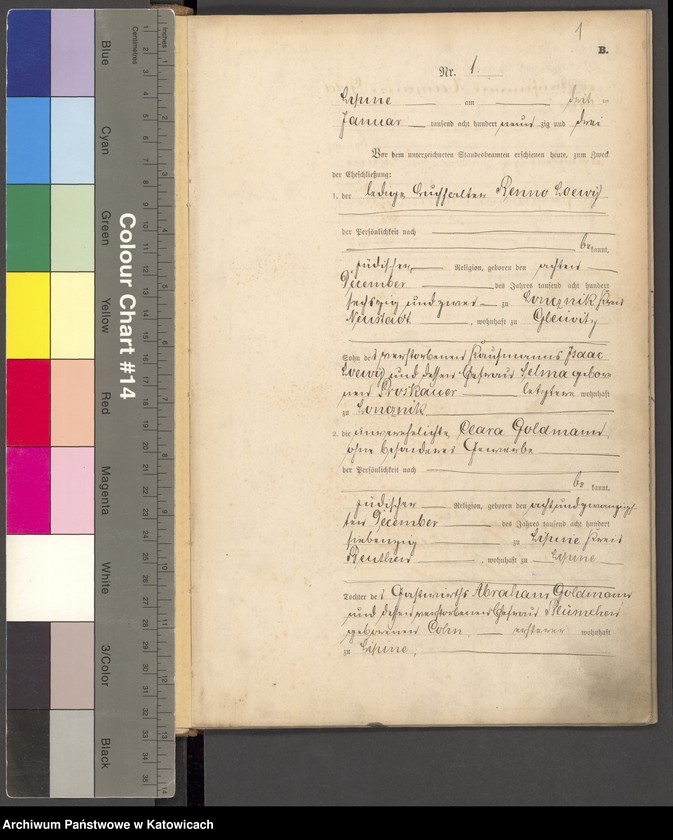 Blue
Cyan
Green
Yellow
Red
Magenta
White
3/Color
Black
Colour Chart #14
Centimetres
Inches
1
B.
Nr. 1.
Lipine am
Januar tausend acht hundert neun zig und drei
Vor dem unterzeichneten Standesbeamten erschienen heute, zum Zweck
der Eheschließung:
1. der ledige Buchhalter Benno Loewy
der Persönlichkeit nach
be kannt,
jüdischer Religion, geboren den achten
December des Jahres tausend acht hundert
sechszig und zwei zu Lonznik Kreis
Neustadt, wohnhaft zu Gleiwitz
Sohn des verstorbenen Kaufmanns Isaac
Loewy und dessen Ehefrau Selma gebor
nen Proskauer letztere wohnhaft
zu Lonznik
2. die unverehelichte Clara Goldmann,
ohne besonderes Gewerbe
der Persönlichkeit nach
be kannt,
jüdischer Religion, geboren den acht und zwanzigs
ten December des Jahres tausend acht hundert
siebenzig zu Lipine Kreis
Beuthen, wohnhaft zu Lipine
Tochter des Gastwirths Abraham Goldmann
und dessen verstorbenen Ehefrau Blümchen
geborenen Cohn, ersterer wohnhaft
zu Lipine.
Archiwum Państwowe w Katowicach